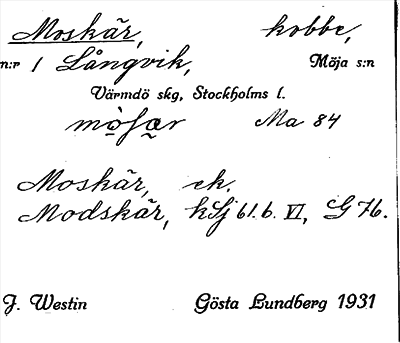 Moskär, kobbe,
n:r 1 Långvik, Möja s:n
Värmdö skg, Stockholms l.
Ma 84
Moskär, ek.
Modskär, kSj 61.b. VI, G 76.
J. Westin Gösta Lundberg 1931